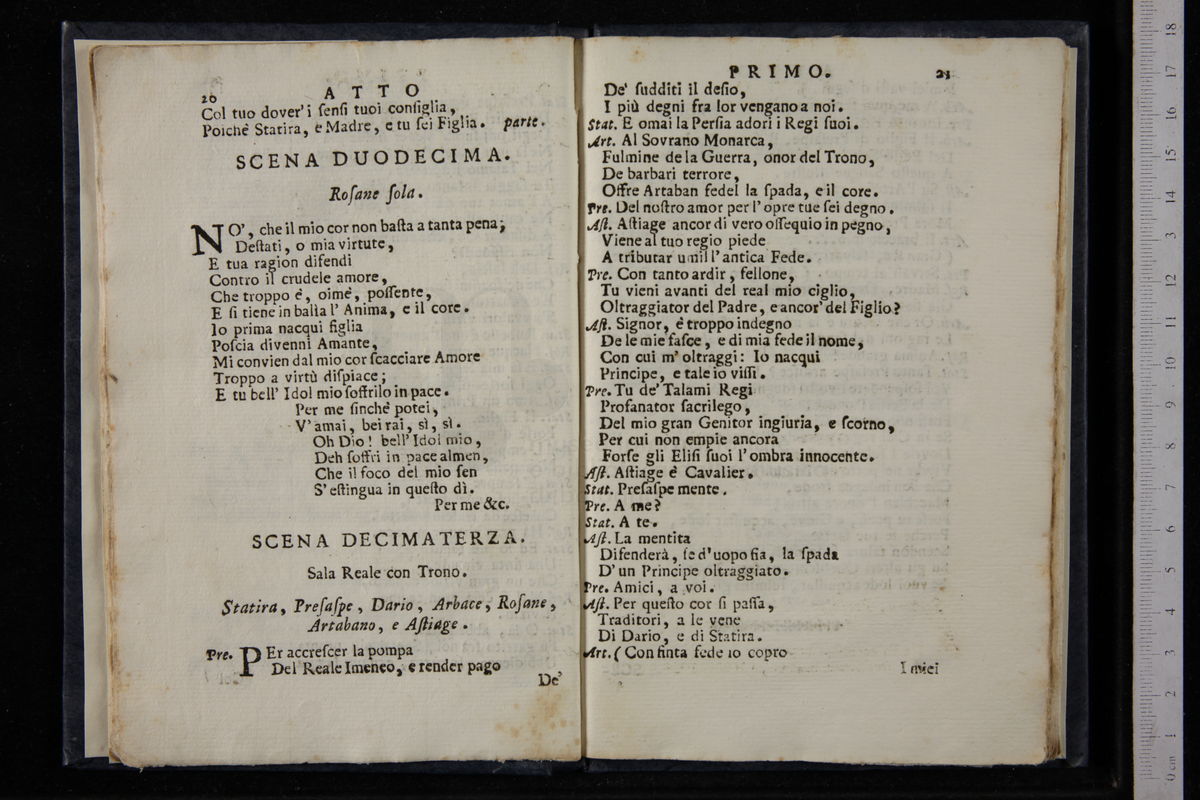 20
ATTO
Col tuo dover' i ſenſi tuoi conſiglia,
Poichè Statira, è Madre, e tu ſei Figlia. parte.
SCENA DUODECIMA.
Roſane ſola.
NO', che il mio cor non baſta a tanta pena;
Deſtati, o mia virtute,
E tua ragion difendi
Contro il crudele amore,
Che troppo è, oimè, poſſente,
E ſi tiene in balìa l' Anima, e il core.
Io prima nacqui figlia
Poſcia divenni Amante,
Mi convien dal mio cor ſcacciare Amore
Troppo a virtù diſpiace;
E tu bell' Idol mio ſoffrilo in pace.
Per me finchè potei,
V' amai, bei rai, sì, sì.
Oh Dio! bell' Idol mio,
Deh ſoffri in pace almen,
Che il foco del mio ſen
S' eſtingua in queſto dì.
Per me &c.
SCENA DECIMATERZA.
Sala Reale con Trono.
Statira, Preſaſpe, Dario, Arbace, Roſane,
Artabano, e Aſtiage.
Pre. PEr accreſcer la pompa
Del Reale Imeneo, e render pago
De'
PRIMO. 21
De' ſudditi il deſio,
I più degni fra lor vengano a noi.
Stat. E omai la Perſia adori i Regi ſuoi.
Art. Al Sovrano Monarca,
Fulmine de la Guerra, onor del Trono,
De barbari terrore,
Offre Artaban fedel la ſpada, e il core.
Pre. Del noſtro amor per l' opre tue ſei degno.
Aſt. Aſtiage ancor di vero oſſequio in pegno,
Viene al tuo regio piede
A tributar umil l' antica Fede.
Pre. Con tanto ardir, fellone,
Tu vieni avanti del real mio ciglio,
Oltraggiator del Padre, e ancor' del Figlio?
Aſt. Signor, è troppo indegno
De le mie faſce, e di mia fede il nome,
Con cui m' oltraggi: Io nacqui
Principe, e tale io viſſi.
Pre. Tu de' Talami Regi
Profanator ſacrilego,
Del mio gran Genitor ingiuria, e ſcorno,
Per cui non empie ancora
Forſe gli Eliſi ſuoi l' ombra innocente.
Aſt. Aſtiage è Cavalier.
Stat. Preſaſpe mente.
Pre. A me?
Stat. A te.
Aſt. La mentita
Difenderà, ſe d' uopo fia, la ſpada
D' un Principe oltraggiato.
Pre. Amici, a voi.
Aſt. Per queſto cor ſi paſſa,
Traditori, a le vene
Di Dario, e di Statira.
Art. (Con finta fede io copro
I miei
0 cm 1 2 3 4 5 6 7 8 9 10 11 12 13 14 15 16 17 18